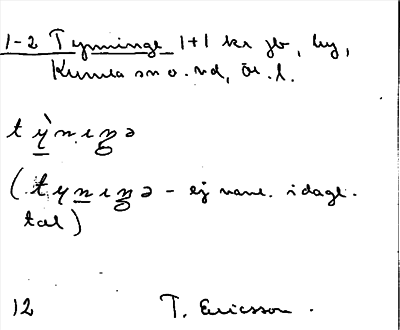 1-2 Tynninge 1+1 kr jb, by,
Kumla sn o. hd, Ör. l.
tỳnɪŋə
(tynɪŋə - ej vanl. i dagl.
tal)
12 T. Ericsson.